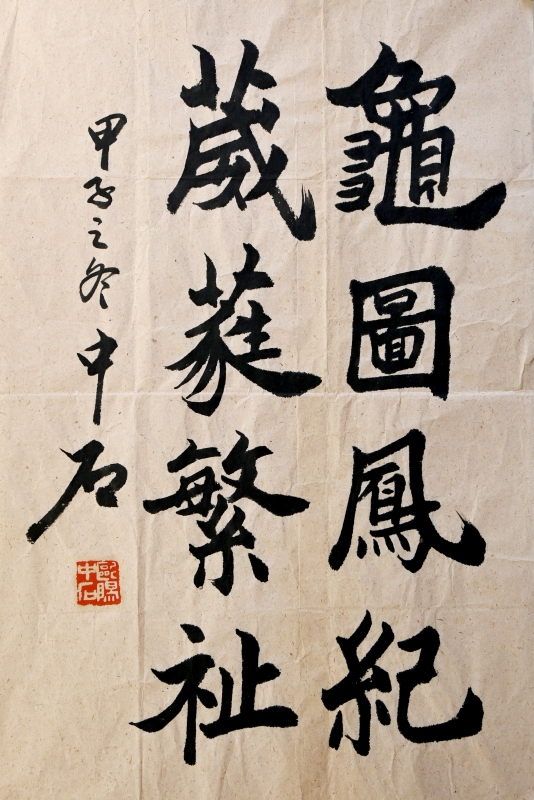 龜圖鳳紀
葳蕤繁祉
甲子之冬中石
歐陽中石